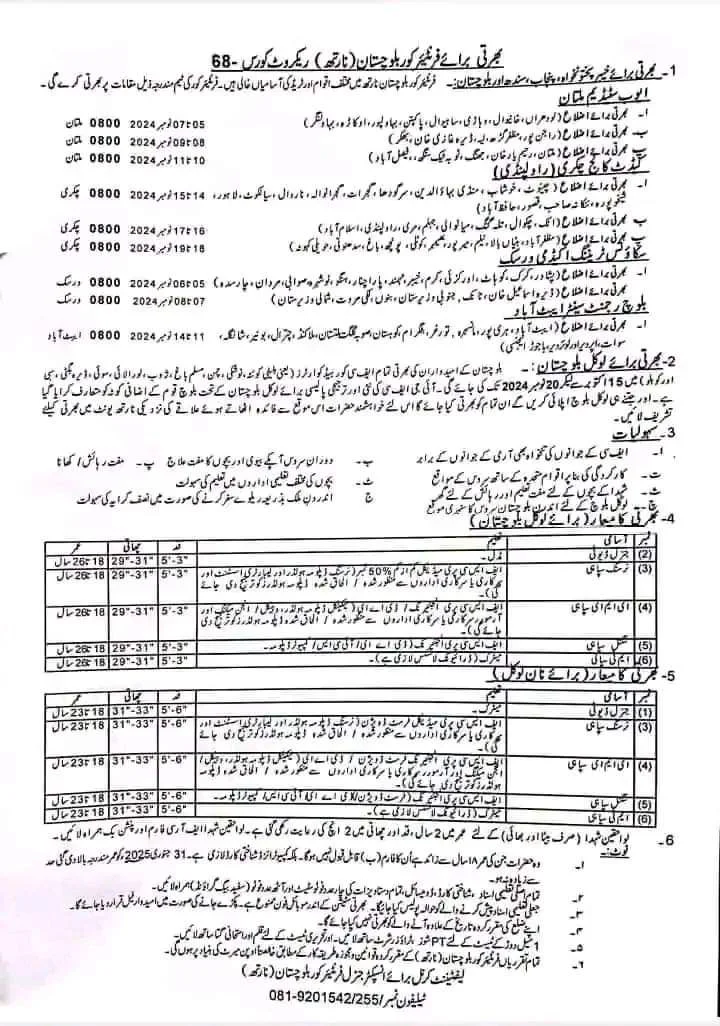 بھرتی برائے فرنٹیئر کور بلوچستان (نارتھ) ریکروٹ کورس -68
1- بھرتی برائے خیبر پختونخواہ، پنجاب، سندھ اور بلوچستان:- فرنٹیئر کور بلوچستان نارتھ میں مختلف اقوام اور ٹریڈ کی آسامیاں خالی ہیں۔ فرنٹیئر کور کی ٹیم مندرجہ ذیل مقامات پر بھرتی کرے گی۔
ایوب سٹیڈیم ملتان
ا- بھرتی برائے اضلاع (لودھراں، خانیوال، وہاڑی، ساہیوال، پاکپتن، بہاولپور، اوکاڑہ، بہاولنگر) 05 تا 07 نومبر 2024 0800 ملتان
ب- بھرتی برائے اضلاع (راجن پور، مظفر گڑھ، لیہ، ڈیرہ غازی خان، بھکر) 08 تا 09 نومبر 2024 0800 ملتان
پ- بھرتی برائے اضلاع (ملتان، رحیم یار خان، جھنگ، ٹوبہ ٹیک سنگھ، فیصل آباد) 10 تا 11 نومبر 2024 0800 ملتان
کیڈٹ کالج چکری (راولپنڈی)
ا- بھرتی برائے اضلاع (چنیوٹ، خوشاب، منڈی بہاؤالدین، سرگودھا، گجرات، گجرانوالہ، نارووال، سیالکوٹ، لاہور، 14 تا 15 نومبر 2024 0800 چکری
شیخوپورہ، ننکانہ صاحب، قصور، حافظ آباد)
ب- بھرتی برائے اضلاع (اٹک، چکوال، تلہ گنگ، میانوالی، جہلم، مری، راولپنڈی، اسلام آباد) 16 تا 17 نومبر 2024 0800 چکری
پ- بھرتی برائے اضلاع (مظفر آباد، ہٹیاں بالا، نیلم، میرپور، بھمبر، کوٹلی، پونچھ، باغ، سدھنوتی، حویلی کہوٹہ) 18 تا 19 نومبر 2024 0800 چکری
سکاؤٹس ٹریننگ اکیڈمی ورسک
ا- بھرتی برائے اضلاع (پشاور، کرک، کوہاٹ، اورکزئی، کرم، خیبر، مہمند، پاراچنار، ہنگو، نوشہرہ، صوابی، مردان، چارسدہ) 05 تا 06 نومبر 2024 0800 ورسک
ب- بھرتی برائے اضلاع (ڈیرہ اسماعیل خان، ٹانک، جنوبی وزیرستان، بنوں، لکی مروت، شمالی وزیرستان) 07 تا 08 نومبر 2024 0800 ورسک
بلوچ رجمنٹ سینٹر ایبٹ آباد
ا- بھرتی برائے اضلاع (ایبٹ آباد، ہری پور، مانسہرہ، تورغر، بٹگرام، کوہستان، صوبہ گلگت بلتستان، ملاکنڈ، چترال، بونیر، شانگلہ، 11 تا 14 نومبر 2024 0800 ایبٹ آباد
سوات، اپر دیر اور لوئر دیر، باجوڑ ایجنسی)
2- بھرتی برائے لوکل بلوچستان:- بلوچستان کے امیدواران کی بھرتی تمام ایف سی کور ہیڈ کوارٹرز کوئٹہ، نوشکی، چمن، مسلم باغ، ژوب، لورالائی، سوئی، ڈیرہ بگٹی، سبی
اور کوہلو) میں 15 اکتوبر سے لیکر 20 نومبر 2024 تک کی جائے گی۔ آئی جی ایف سی کی نئی اور ترجیحی پالیسی برائے لوکل بلوچستان کے تحت بلوچ قوم کے اضافی کوٹہ کو متعارف کرایا گیا
ہے۔ اور جتنے ہی لوکل بلوچ اپلائی کریں گے ان تمام کو بھرتی کیا جائے گا اس لئے خواہشمند حضرات اس موقع سے فائدہ اٹھاتے ہوئے علاقے کی نزدیکی نارتھ یونٹ میں بھرتی کیلئے
تشریف لائیں۔
3- سہولیات
ا- ایف سی کے جوانوں کی تنخواہ بھی آرمی کے جوانوں کے برابر ب- دوران سروس آپکے بیوی اور بچوں کا مفت علاج پ- مفت رہائش / کھانا
ت- کارکردگی کی بنا پر اقوام متحدہ کے ساتھ سروس کے مواقع ٹ- بچوں کی مختلف تعلیمی اداروں میں تعلیم کی سہولت
ث- شہدا کے بچوں کے لئے مفت تعلیم اور رہائش کے لئے گھر ج اندرون ملک بذریعہ ریلوے سفر کرنے کی صورت میں نصف کرایہ کی سہولت
چ- لوکل بلوچ کے لئے اندرون بلوچستان سروس کا سنہری موقع
4- بھرتی کا معیار (برائے لوکل بلوچستان)
نمبر آسامی تعلیم قد چھاتی عمر
(2) جنرل ڈیوٹی مڈل۔ 5'-3" 29"-31" 18 تا 26 سال
(3) نرسنگ سپاہی ایف ایس سی پری میڈیکل کم از کم 50% نمبر (نرسنگ ڈپلومہ ہولڈرز اور لیبارٹری اسسٹنٹ اور 5'-3" 29"-31" 18 تا 26 سال
سرکاری یا سرکاری اداروں سے منظور شدہ / الحاق شدہ ڈپلومہ ہولڈرز کو ترجیح دی جائے
گی)۔
(4) ای ایم ای سپاہی ایف ایس سی پری انجینئرنگ / ڈی اے ای (ٹیکنیکل ڈپلومہ ہولڈرز، وہیکل / انجن میکنک اور 5'-3" 29"-31" 18 تا 26 سال
آرمورر سرکاری یا سرکاری اداروں سے منظور شدہ / الحاق شدہ ڈپلومہ ہولڈرز کو ترجیح دی
جائے گی)
(5) سگنل سپاہی ایف ایس سی پری انجینئرنگ (ڈی اے ای / آئی سی ایس / کمپیوٹر ڈپلومہ۔ 5'-3" 29"-31" 18 تا 26 سال
(6) ایم ٹی سپاہی میٹرک (ڈرائیونگ لائسنس لازمی ہے)۔ 5'-3" 29"-31" 18 تا 26 سال
5- بھرتی کا معیار (برائے نان لوکل)
نمبر آسامی تعلیم قد چھاتی عمر
(1) جنرل ڈیوٹی میٹرک۔ 5'-6" 31"-33" 18 تا 23 سال
(3) نرسنگ سپاہی ایف ایس سی پری میڈیکل فرسٹ ڈویژن (نرسنگ ڈپلومہ ہولڈرز اور لیبارٹری اسسٹنٹ اور 5'-6" 31"-33" 18 تا 23 سال
سرکاری یا سرکاری اداروں سے منظور شدہ / الحاق شدہ ڈپلومہ ہولڈرز کو ترجیح دی جائے
گی)۔
(4) ای ایم ای سپاہی ایف ایس سی پری انجینئرنگ فرسٹ ڈویژن / ڈی اے ای (ٹیکنیکل ڈپلومہ ہولڈرز، وہیکل / 5'-6" 31"-33" 18 تا 23 سال
انجن میکنک اور آرمورر سرکاری یا سرکاری اداروں سے منظور شدہ ڈپلومہ ہولڈرز کو ترجیح دی
جائے گی)۔
(5) سگنل سپاہی ایف ایس سی پری انجینئرنگ (فرسٹ ڈویژن) / ڈی اے ای / آئی سی ایس / کمپیوٹر ڈپلومہ۔ 5'-6" 31"-33" 18 تا 23 سال
(6) ایم ٹی سپاہی میٹرک (ڈرائیونگ لائسنس لازمی ہے)۔ 5'-6" 31"-33" 18 تا 23 سال
6- لواحقین شہدا (صرف بیٹا اور بھائی) کے لئے عمر میں 2 سال، قد اور چھاتی میں 2 انچ کی رعایت رکھی گئی ہے۔ لواحقین شہدا ایف آر سی فارم اور پنشن بک ہمراہ لائیں۔
نوٹ:-
۱- وہ حضرات جن کی عمر ۱۸ سال سے زائد ہے اُن کا فارم (ب) قابل قبول نہیں ہوگا۔ بلکہ کمپیوٹرائزڈ شناختی کارڈ لازمی ہے۔ 31 جنوری 2025 کو عمر مندرجہ بالا دی گئی حد
سے زیادہ نہ ہو۔
۲- تمام اصلی تعلیمی اسناد، شناختی کارڈ، ڈومیسائل، تمام دستاویزات کی چار عدد فوٹو سٹیٹ اور آٹھ عدد فوٹو (سفید بیک گراؤنڈ) ہمراہ لائیں۔
۳- جعلی تعلیمی اسناد پیش کرنے والے کو حوالہ پولیس کیا جائیگا۔ بھرتی سیکشن کے اندر موبائل فون ممنوع ہے۔ پکڑے جانے کی صورت میں امیدوار فیل قرار دیا جائے گا۔
۴- اپنے ضلع کی مقرر کردہ تاریخ کے علاوہ آنے والے کو بھرتی نہیں کیا جائیگا۔
۵- 1 میل دوڑ کے ٹیسٹ کے لئے PT شوز، ٹراؤزر شرٹ ساتھ لائیں۔ اور تحریری ٹیسٹ کے لئے قلم اور امتحانی گتا ساتھ لائیں۔
۶- تمام تقرریاں فرنٹیئر کور بلوچستان (نارتھ) کے مقرر کردہ قوانین و مجوزہ طریقہ کار کے مطابق خالصتاً اوپن میرٹ کی بنیاد پر ہوں گی۔
لیفٹیننٹ کرنل برائے انسپکٹر جنرل فرنٹیئر کور بلوچستان (نارتھ)
ٹیلیفون نمبر / 081-9201542/255